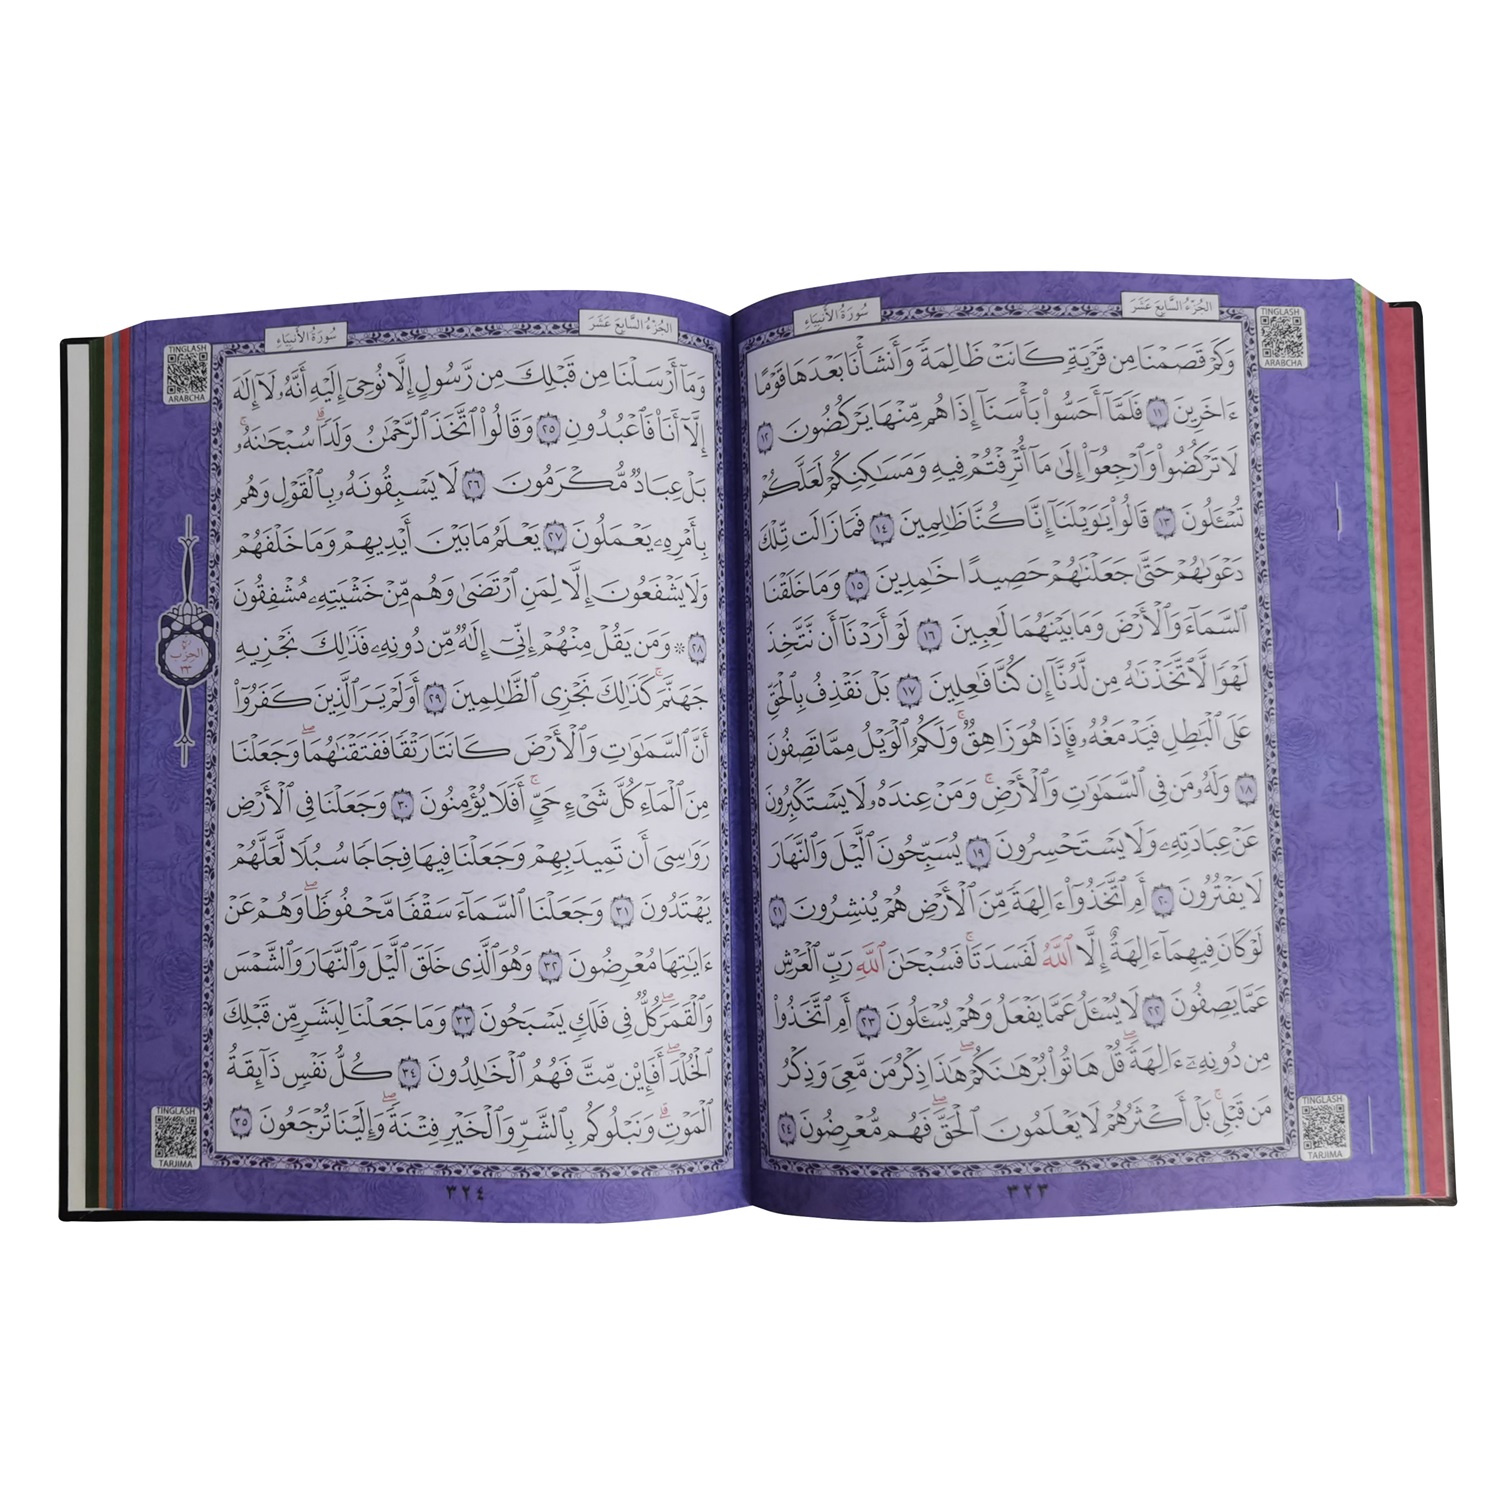 سُورَةُ الأَنبِيَاءِ
الجُزْءُ السَّابِعَ عَشَرَ
TINGLASH
ARABCHA
وَكَمْ قَصَمْنَا مِن قَرْيَةٍ كَانَتْ ظَالِمَةً وَأَنشَأْنَا بَعْدَهَا قَوْمًا
ءَاخَرِينَ ١١ فَلَمَّآ أَحَسُّوا۟ بَأْسَنَآ إِذَا هُم مِّنْهَا يَرْكُضُونَ ١٢
لَا تَرْكُضُوا۟ وَٱرْجِعُوٓا۟ إِلَىٰ مَآ أُتْرِفْتُمْ فِيهِ وَمَسَـٰكِنِكُمْ لَعَلَّكُمْ
تُسْـَٔلُونَ ١٣ قَالُوا۟ يَـٰوَيْلَنَآ إِنَّا كُنَّا ظَـٰلِمِينَ ١٤ فَمَا زَالَت تِّلْكَ
دَعْوَىٰهُمْ حَتَّىٰ جَعَلْنَـٰهُمْ حَصِيدًا خَـٰمِدِينَ ١٥ وَمَا خَلَقْنَا
ٱلسَّمَآءَ وَٱلْأَرْضَ وَمَا بَيْنَهُمَا لَـٰعِبِينَ ١٦ لَوْ أَرَدْنَآ أَن نَّتَّخِذَ
لَهْوًا لَّٱتَّخَذْنَـٰهُ مِن لَّدُنَّآ إِن كُنَّا فَـٰعِلِينَ ١٧ بَلْ نَقْذِفُ بِٱلْحَقِّ
عَلَى ٱلْبَـٰطِلِ فَيَدْمَغُهُۥ فَإِذَا هُوَ زَاهِقٌ ۚ وَلَكُمُ ٱلْوَيْلُ مِمَّا تَصِفُونَ
١٨ وَلَهُۥ مَن فِى ٱلسَّمَـٰوَٰتِ وَٱلْأَرْضِ ۚ وَمَنْ عِندَهُۥ لَا يَسْتَكْبِرُونَ
عَنْ عِبَادَتِهِۦ وَلَا يَسْتَحْسِرُونَ ١٩ يُسَبِّحُونَ ٱلَّيْلَ وَٱلنَّهَارَ
لَا يَفْتُرُونَ ٢٠ أَمِ ٱتَّخَذُوٓا۟ ءَالِهَةً مِّنَ ٱلْأَرْضِ هُمْ يُنشِرُونَ ٢١
لَوْ كَانَ فِيهِمَآ ءَالِهَةٌ إِلَّا ٱللَّهُ لَفَسَدَتَا ۚ فَسُبْحَـٰنَ ٱللَّهِ رَبِّ ٱلْعَرْشِ
عَمَّا يَصِفُونَ ٢٢ لَا يُسْـَٔلُ عَمَّا يَفْعَلُ وَهُمْ يُسْـَٔلُونَ ٢٣ أَمِ ٱتَّخَذُوا۟
مِن دُونِهِۦٓ ءَالِهَةً ۖ قُلْ هَاتُوا۟ بُرْهَـٰنَكُمْ ۖ هَـٰذَا ذِكْرُ مَن مَّعِىَ وَذِكْرُ
مَن قَبْلِى ۚ بَلْ أَكْثَرُهُمْ لَا يَعْلَمُونَ ٱلْحَقَّ ۖ فَهُم مُّعْرِضُونَ ٢٤
TINGLASH
TARJIMA
٣٢٣
سُورَةُ الأَنبِيَاءِ
الجُزْءُ السَّابِعَ عَشَرَ
TINGLASH
ARABCHA
وَمَآ أَرْسَلْنَا مِن قَبْلِكَ مِن رَّسُولٍ إِلَّا نُوحِىٓ إِلَيْهِ أَنَّهُۥ لَآ إِلَـٰهَ
إِلَّآ أَنَا۠ فَٱعْبُدُونِ ٢٥ وَقَالُوا۟ ٱتَّخَذَ ٱلرَّحْمَـٰنُ وَلَدًا ۗ سُبْحَـٰنَهُۥ ۚ
بَلْ عِبَادٌ مُّكْرَمُونَ ٢٦ لَا يَسْبِقُونَهُۥ بِٱلْقَوْلِ وَهُم
بِأَمْرِهِۦ يَعْمَلُونَ ٢٧ يَعْلَمُ مَا بَيْنَ أَيْدِيهِمْ وَمَا خَلْفَهُمْ
وَلَا يَشْفَعُونَ إِلَّا لِمَنِ ٱرْتَضَىٰ وَهُم مِّنْ خَشْيَتِهِۦ مُشْفِقُونَ
٢٨ ۞ وَمَن يَقُلْ مِنْهُمْ إِنِّىٓ إِلَـٰهٌ مِّن دُونِهِۦ فَذَٰلِكَ نَجْزِيهِ
جَهَنَّمَ ۚ كَذَٰلِكَ نَجْزِى ٱلظَّـٰلِمِينَ ٢٩ أَوَلَمْ يَرَ ٱلَّذِينَ كَفَرُوٓا۟
أَنَّ ٱلسَّمَـٰوَٰتِ وَٱلْأَرْضَ كَانَتَا رَتْقًا فَفَتَقْنَـٰهُمَا ۖ وَجَعَلْنَا
مِنَ ٱلْمَآءِ كُلَّ شَىْءٍ حَىٍّ ۚ أَفَلَا يُؤْمِنُونَ ٣٠ وَجَعَلْنَا فِى ٱلْأَرْضِ
رَوَٰسِىَ أَن تَمِيدَ بِهِمْ وَجَعَلْنَا فِيهَا فِجَاجًا سُبُلًا لَّعَلَّهُمْ
يَهْتَدُونَ ٣١ وَجَعَلْنَا ٱلسَّمَآءَ سَقْفًا مَّحْفُوظًا ۖ وَهُمْ عَنْ
ءَايَـٰتِهَا مُعْرِضُونَ ٣٢ وَهُوَ ٱلَّذِى خَلَقَ ٱلَّيْلَ وَٱلنَّهَارَ وَٱلشَّمْسَ
وَٱلْقَمَرَ ۖ كُلٌّ فِى فَلَكٍ يَسْبَحُونَ ٣٣ وَمَا جَعَلْنَا لِبَشَرٍ مِّن قَبْلِكَ
ٱلْخُلْدَ ۖ أَفَإِي۟ن مِّتَّ فَهُمُ ٱلْخَـٰلِدُونَ ٣٤ كُلُّ نَفْسٍ ذَآئِقَةُ
ٱلْمَوْتِ ۗ وَنَبْلُوكُم بِٱلشَّرِّ وَٱلْخَيْرِ فِتْنَةً ۖ وَإِلَيْنَا تُرْجَعُونَ ٣٥
الحِزْب
٣٣
TINGLASH
TARJIMA
٣٢٤